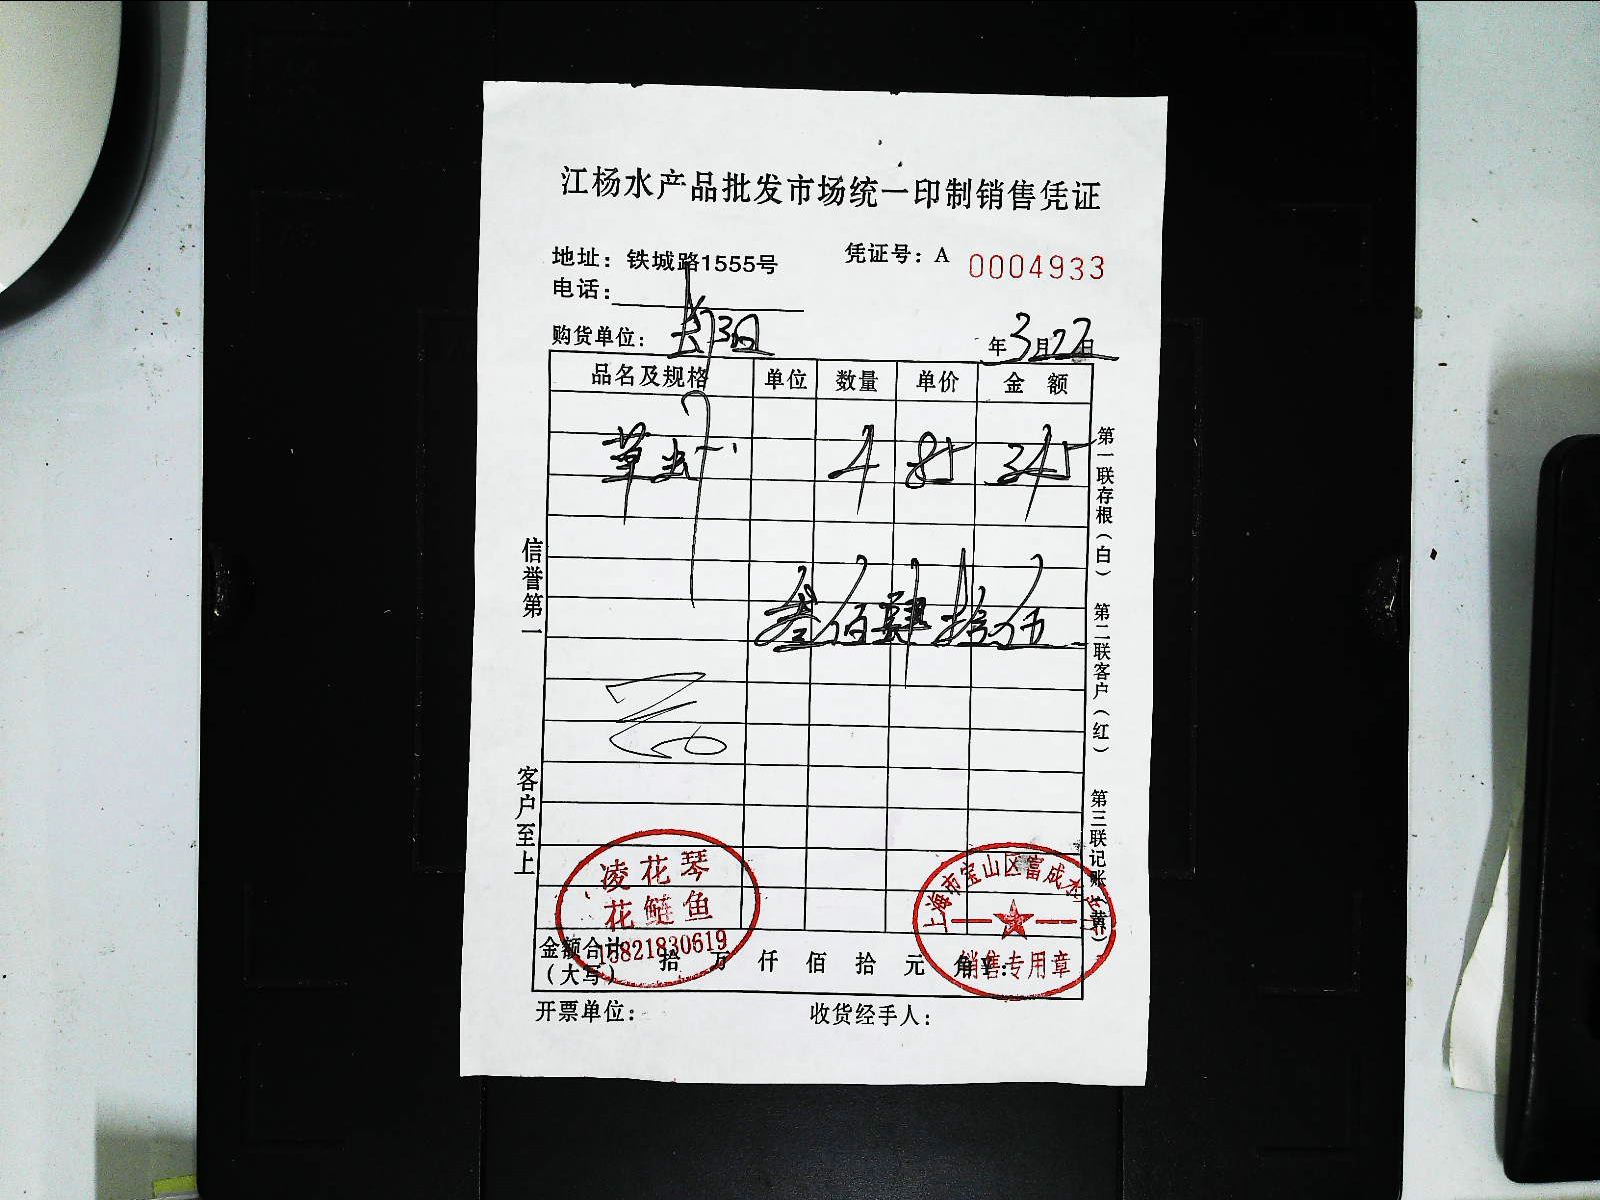 江杨水产品批发市场统一印制销售凭证
地址：铁城路1555号
凭证号：A 0004933
电话：
购货单位：
年3月22日
品名及规格 单位 数量 单价 金额
草 4 85 345
叁佰肆拾伍
信誉第一
客户至上
第一联存根（白） 第二联客户（红） 第三联记账（黄）
凌花琴
花鲢鱼
15821830619
上海市宝山区富成水
销售专用章
金额合计（大写） 拾 万 仟 佰 拾 元 角 ¥：
开票单位： 收货经手人：